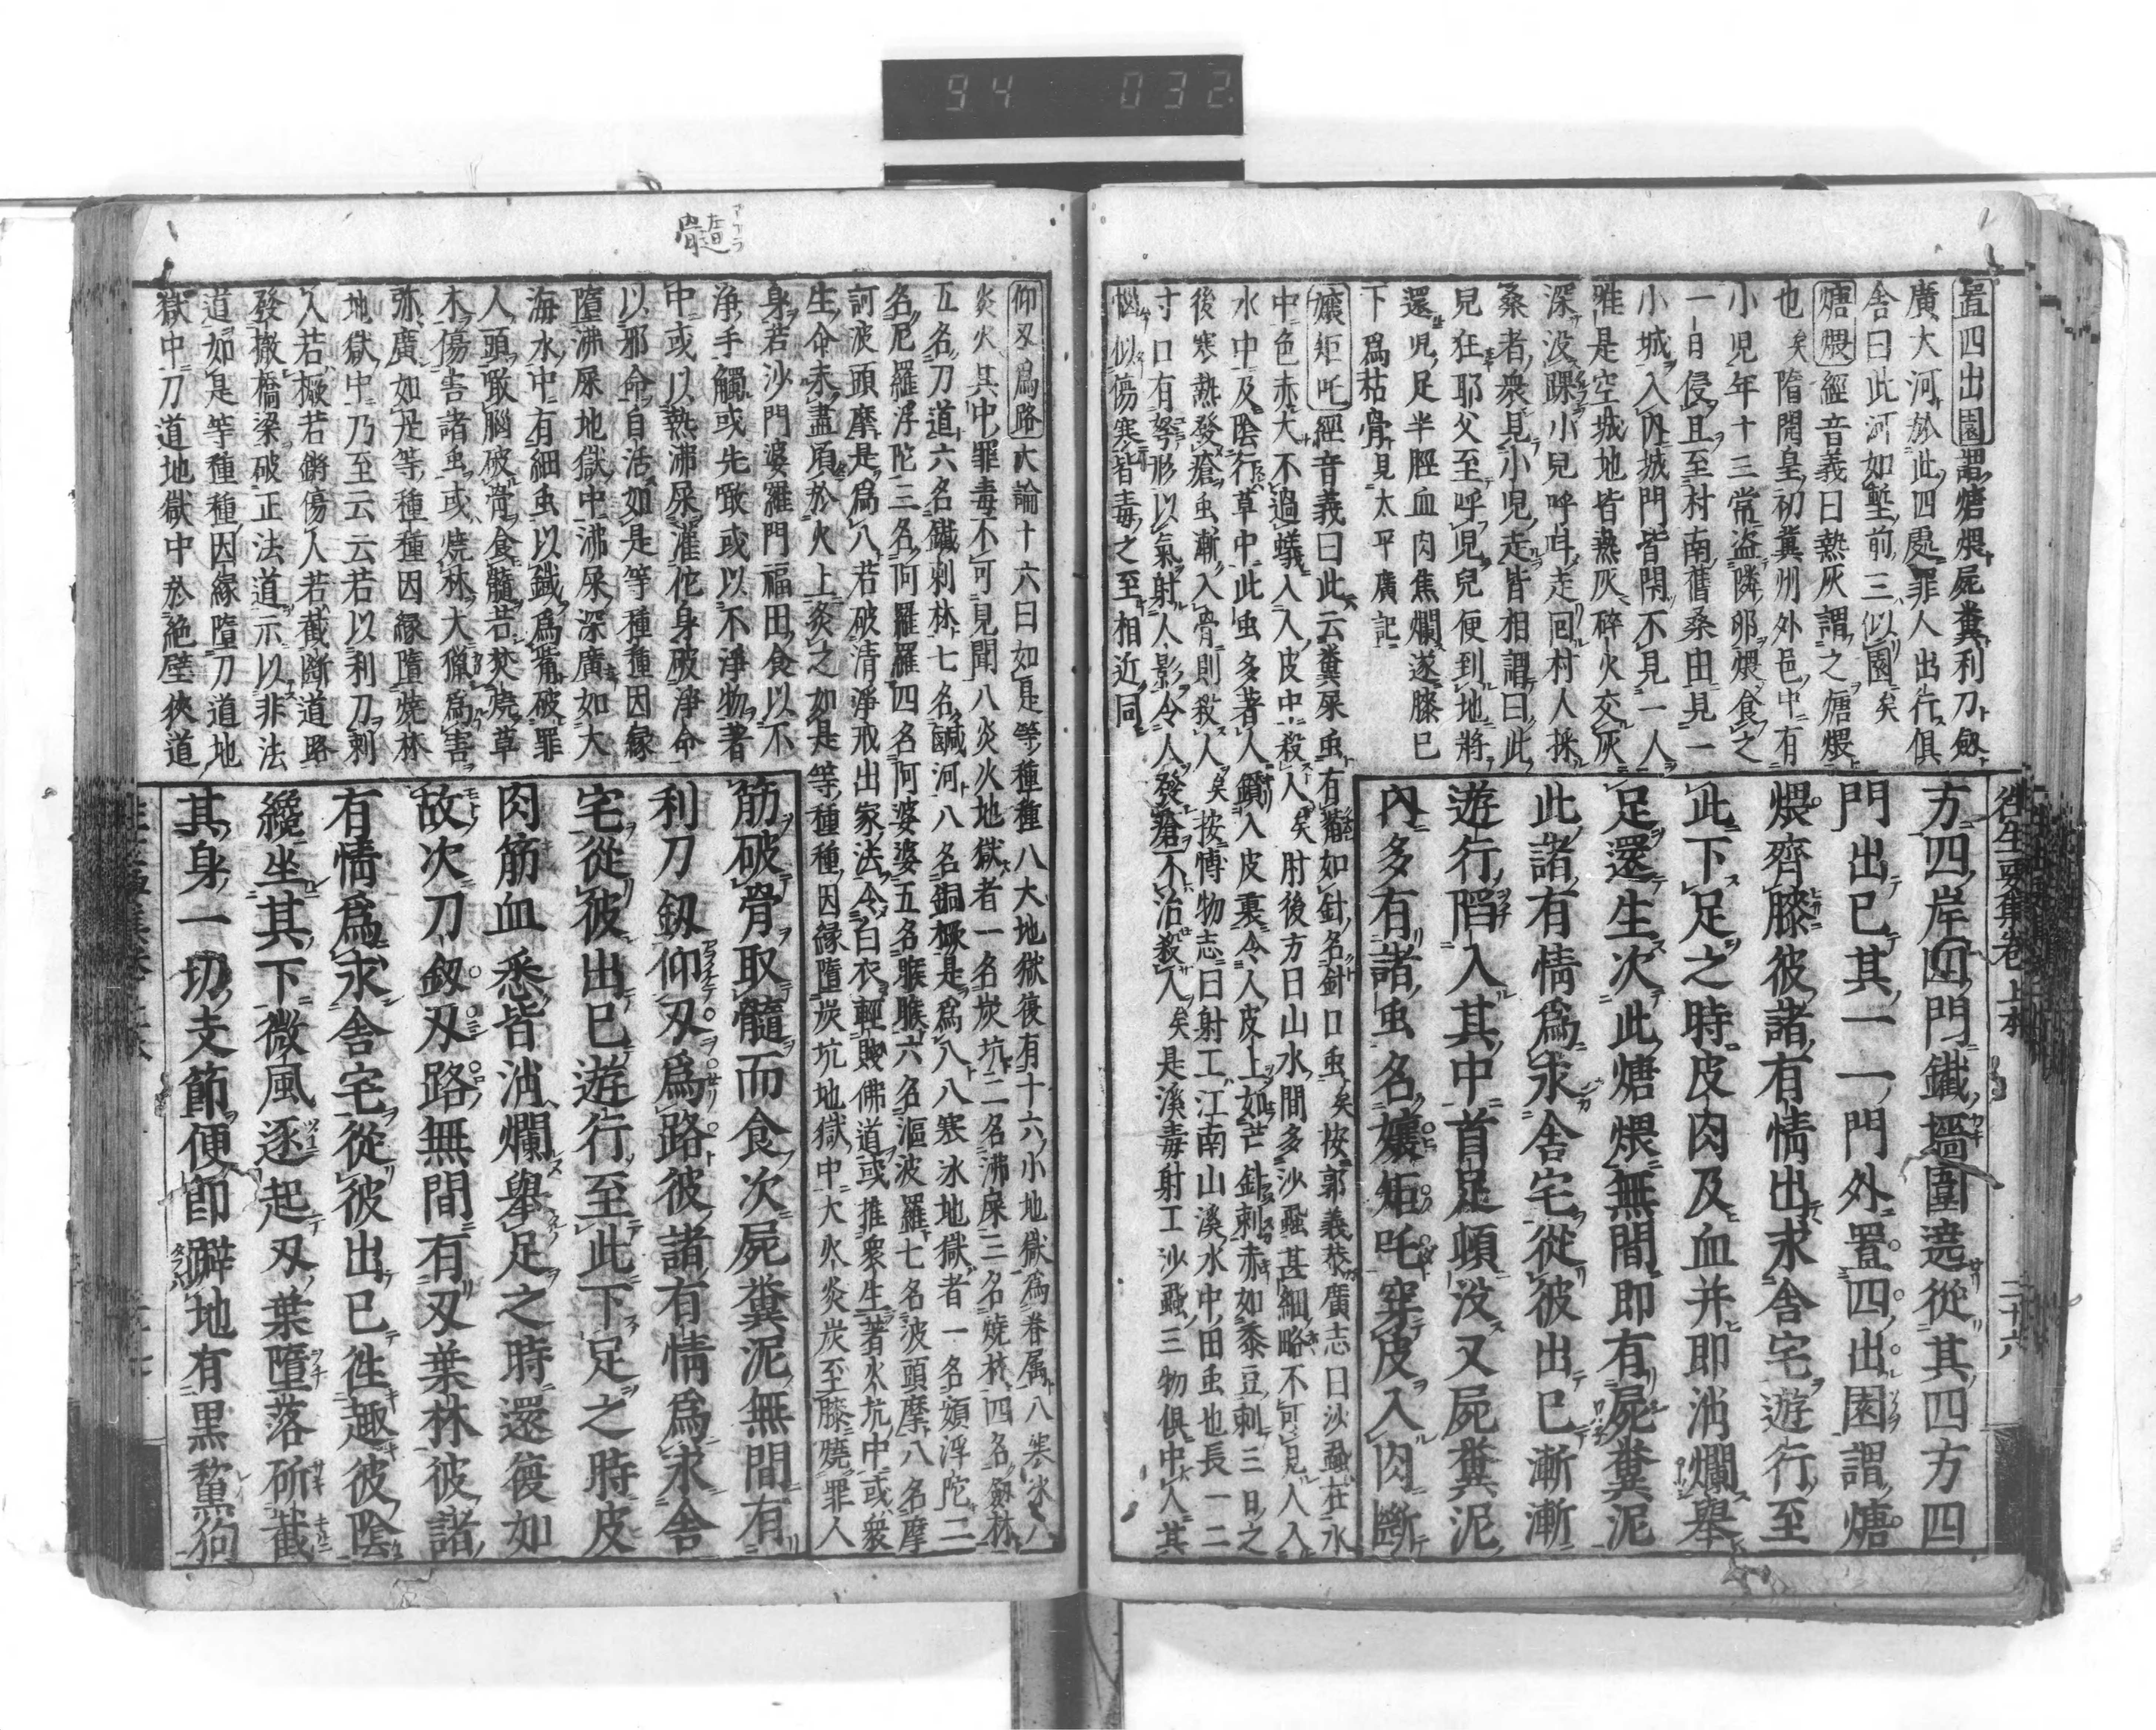 94 032
置四出園謂煻煨屍糞利刀劔
廣大河於此四處罪人出行俱
舍曰此河如塹前三似園矣
煻煨經音義曰熱灰謂之煻煨
也矣隋開皇初冀州外邑中有
小兒年十三常盜隣卵煨食之
一日侵旦至村南舊桑田見一
小城入内城門皆閇不見一人
唯是空城地皆熱灰碎火交灰
深没踝小兒呼走回村人採
桑者衆見小兒走皆相謂曰此
兒狂耶父至呼兒兒便到地將
還兒足半脛血肉焦爛遂膝已
下爲枯骨見太平廣記
孃矩吒經音義曰此云糞屎虫有觜如針名針口虫矣按郭義恭廣志曰沙蝨在水
中色赤大不過蟻入人皮中殺人矣肘後方曰山水間多沙蝨甚細略不可見人入
水中及陰行草中此虫多著人鑽入皮裏令人皮上如芒針刺赤如黍豆刺三日之
後寒熱發瘡虫漸入骨則殺人矣按博物志曰射工江南山溪水中田虫也長一二
寸口有弩形以氣射人影令人發瘡不治殺人矣是溪毒射工沙蝨三物俱中人其
惱似傷寒皆毒之至相近同
往生要集卷上本 二十六
方四岸四門鐵墻圍遶從其四方四
門出已其一一門外置四出園謂煻
煨齊膝彼諸有情出求舍宅遊行至
此下足之時皮肉及血并即消爛舉
足還生次此煻煨無間即有屍糞泥
此諸有情爲求舍宅從彼出已漸漸
遊行陷入其中首足頓没又屍糞泥
内多有諸虫名孃矩吒穿皮入肉斷
髓
仰刄爲路大論十六曰如是等種種八大地獄復有十六小地獄爲眷属八寒氷八
炎火其中罪毒不可見聞八炎火地獄者一名炭坑二名沸屎三名燒林四名劔林
五名刀道六名鐵刺林七名鹹河八名銅橛是爲八八寒氷地獄者一名頞浮陀二
名尼羅浮陀三名阿羅羅四名阿婆婆五名睺睺六名漚波羅七名波頭摩八名摩
訶波頭摩是爲八若破清淨戒出家法令白衣輕賤佛道或推衆生著火坑中或衆
生命未盡頃於火上炙之如是等種種因緣墮炭坑地獄中大火炎炭至膝燒罪人
身若沙門婆羅門福田食以不
淨手觸或先噉或以不淨物著
中或以熱沸屎灌佗身破淨命
以邪命自活如是等種種因緣
墮沸屎地獄中沸屎深廣如大
海水中有細虫以鐵爲觜破罪
人頭噉腦破骨食髓若焚燒草
木傷害諸虫或燒林大獵爲害
弥廣如是等種種因緣墮燒林
地獄中乃至云云若以利刀刺
人若橛若鏘傷人若截斷道路
發撤橋梁破正法道示以非法
道如是等種種因緣墮刀道地
獄中刀道地獄中於絶壁狹道
筋破骨取髓而食次屍糞泥無間有
利刀劔仰刄爲路彼諸有情爲求舍
宅從彼出已遊行至此下足之時皮
肉筋血悉皆消爛舉足之時還復如
故次刀劔刄路無間有刄葉林彼諸
有情爲求舍宅從彼出已往趣彼陰
纔坐其下微風逐起刄葉墮落斫截
其身一切支節便即躃地有黒黧狗